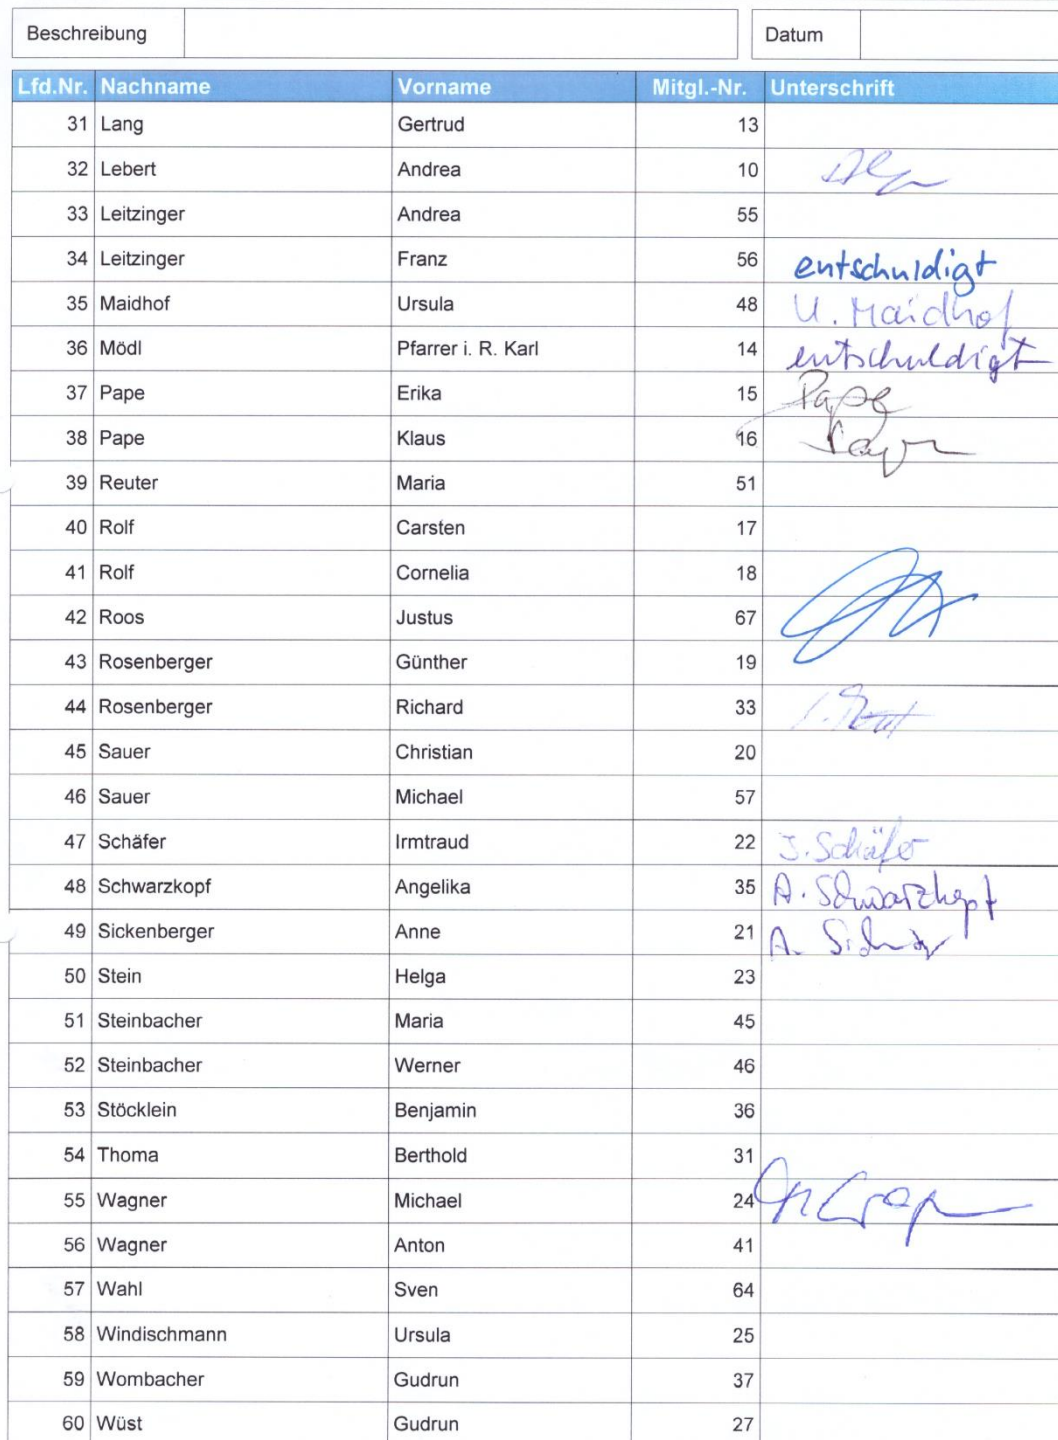 Beschreibung Datum
Lfd.Nr. Nachname Vorname Mitgl.-Nr. Unterschrift
31 Lang Gertrud 13
32 Lebert Andrea 10
33 Leitzinger Andrea 55
34 Leitzinger Franz 56 entschuldigt
35 Maidhof Ursula 48 U. Maidhof
36 Mödl Pfarrer i. R. Karl 14 entschuldigt
37 Pape Erika 15 Pape
38 Pape Klaus 16
39 Reuter Maria 51
40 Rolf Carsten 17
41 Rolf Cornelia 18
42 Roos Justus 67
43 Rosenberger Günther 19
44 Rosenberger Richard 33
45 Sauer Christian 20
46 Sauer Michael 57
47 Schäfer Irmtraud 22 J. Schäfer
48 Schwarzkopf Angelika 35 A. Schwarzkopf
49 Sickenberger Anne 21 A.
50 Stein Helga 23
51 Steinbacher Maria 45
52 Steinbacher Werner 46
53 Stöcklein Benjamin 36
54 Thoma Berthold 31
55 Wagner Michael 24
56 Wagner Anton 41
57 Wahl Sven 64
58 Windischmann Ursula 25
59 Wombacher Gudrun 37
60 Wüst Gudrun 27